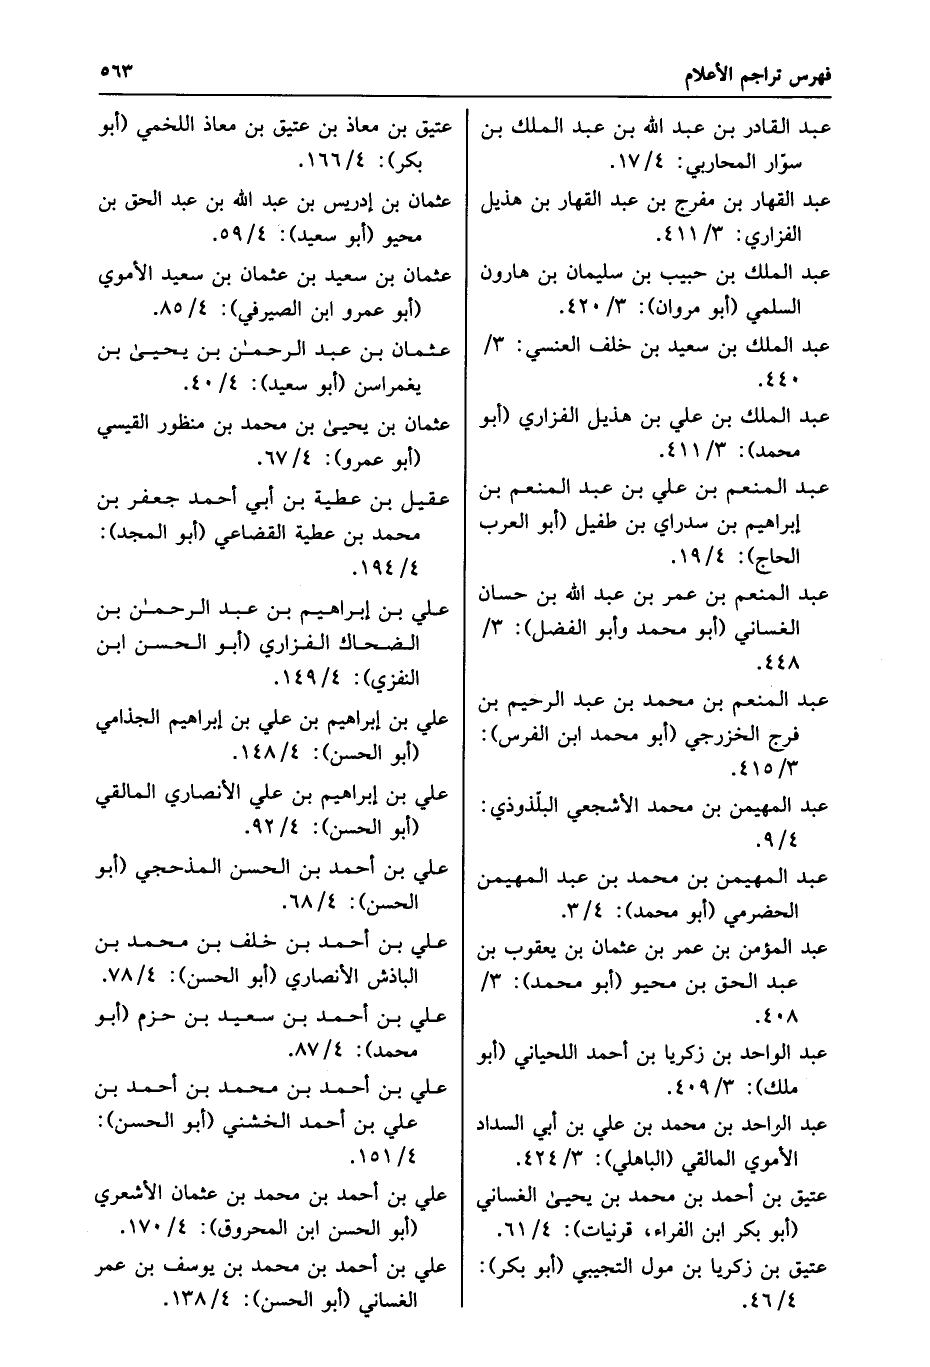 فهرس تراجم الأعلام
٥٦٣
عبد القادر بن عبد الله بن عبد الملك بن
سوّار المحاربي: ١٧/٤.
عبد القهار بن مفرج بن عبد القهار بن هذيل
الفزاري: ٤١١/٣.
عبد الملك بن حبيب بن سليمان بن هارون
السلمي (أبو مروان): ٤٢٠/٣.
عبد الملك بن سعيد بن خلف العنسي: ٣/
٤٤٠.
عبد الملك بن علي بن هذيل الفزاري (أبو
محمد): ٤١١/٣.
عبد المنعم بن علي بن عبد المنعم بن
إبراهيم بن سدراي بن طفيل (أبو العرب
الحاج): ١٩/٤.
عبد المنعم بن عمر بن عبد الله بن حسان
الغساني (أبو محمد وأبو الفضل): ٣/
٤٤٨.
عبد المنعم بن محمد بن عبد الرحيم بن
فرج الخزرجي (أبو محمد ابن الفرس):
٤١٥/٣.
عبد المهيمن بن محمد الأشجعي البلّذوذي:
٩/٤.
عبد المهيمن بن محمد بن عبد المهيمن
الحضرمي (أبو محمد): ٣/٤.
عبد المؤمن بن عمر بن عثمان بن يعقوب بن
عبد الحق بن محيو (أبو محمد): ٣/
٤٠٨.
عبد الواحد بن زكريا بن أحمد اللحياني (أبو
ملك): ٤٠٩/٣.
عبد الراحد بن محمد بن علي بن أبي السداد
الأموي المالقي (الباهلي): ٤٢٤/٣.
عتيق بن أحمد بن محمد بن يحيىٰ الغساني
(أبو بكر ابن الفراء، قرنيات): ٦١/٤.
عتيق بن زكريا بن مول التجيبي (أبو بكر):
٤٦/٤.
عتيق بن معاذ بن عتيق بن معاذ اللخمي (أبو
بكر): ١٦٦/٤.
عثمان بن إدريس بن عبد الله بن عبد الحق بن
محيو (أبو سعيد): ٥٩/٤.
عثمان بن سعيد بن عثمان بن سعيد الأموي
(أبو عمرو ابن الصيرفي): ٨٥/٤.
عثمان بن عبد الرحمـٰن بن يحيىٰ بن
يغمراسن (أبو سعيد): ٤٠/٤.
عثمان بن يحيىٰ بن محمد بن منظور القيسي
(أبو عمرو): ٦٧/٤.
عقيل بن عطية بن أبي أحمد جعفر بن
محمد بن عطية القضاعي (أبو المجد):
١٩٤/٤.
علي بن إبراهيم بن عبد الرحمـٰن بن
الضحاك الفزاري (أبو الحسن ابن
النفزي): ١٤٩/٤.
علي بن إبراهيم بن علي بن إبراهيم الجذامي
(أبو الحسن): ١٤٨/٤.
علي بن إبراهيم بن علي الأنصاري المالقي
(أبو الحسن): ٩٢/٤.
علي بن أحمد بن الحسن المذحجي (أبو
الحسن): ٦٨/٤.
علي بن أحمد بن خلف بن محمد بن
الباذش الأنصاري (أبو الحسن): ٧٨/٤.
علي بن أحمد بن سعيد بن حزم (أبو
محمد): ٨٧/٤.
علي بن أحمد بن محمد بن أحمد بن
علي بن أحمد الخشني (أبو الحسن):
١٥١/٤.
علي بن أحمد بن محمد بن عثمان الأشعري
(أبو الحسن ابن المحروق): ١٧٠/٤.
علي بن أحمد بن محمد بن يوسف بن عمر
الغساني (أبو الحسن): ١٣٨/٤.